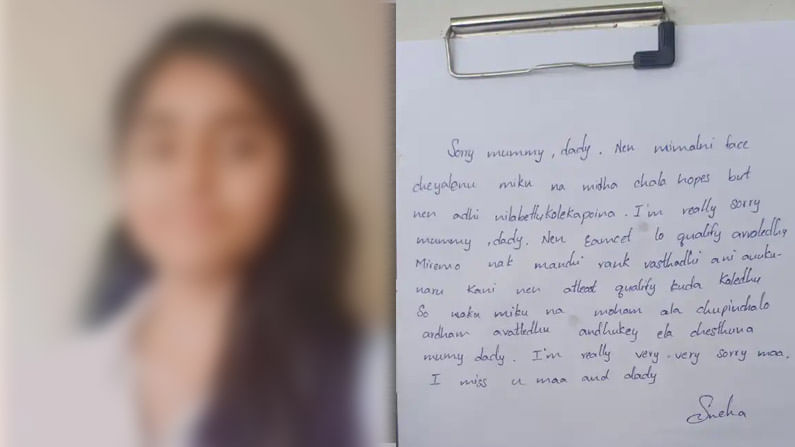 Sorry mummy, dady. Nen mimalni face
cheyalenu miku na midha chala hopes but
nen adhi nilabethukolekapoina. I'm really sorry
mummy, dady. Nen Eamcet lo qualify avaledhu
Miremo nak manchi rank vasthadhi ani anuku-
naru kani nen atleast qualify kuda koledhu
So naku miku na moham ela chupinchalo
ardham avatledhu andhukey ela chesthuna
mumy dady. I'm really very-very sorry maa.
I miss u maa and dady
Sneha